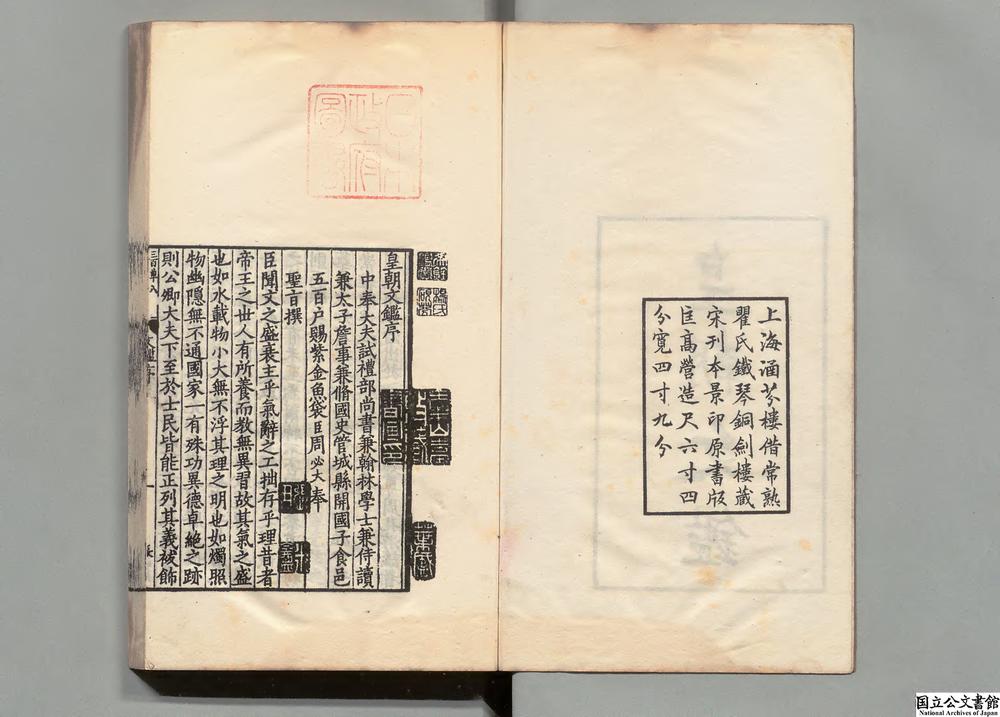 上海涵芬樓借常熟
瞿氏鐵琴銅劍樓藏
宋刊本景印原書版
匡高營造尺六寸四
分寬四寸九分
皇朝文鑑序
中奉大夫試禮部尚書兼翰林學士兼侍讀
兼太子詹事兼脩國史管城縣開國子食邑
五百户賜紫金魚袋臣周必大奉
聖旨撰
臣聞文之盛衰主乎氣辭之工拙存乎理昔者
帝王之世人有所養而教無異習故其氣之盛
也如水載物小大無不浮其理之明也如燭照
物幽隱無不通國家一有殊功異德卓絶之跡
則公卿大夫下至於士民皆能正列其義祓飾
鑑
国立公文書館
National Archives of Japan